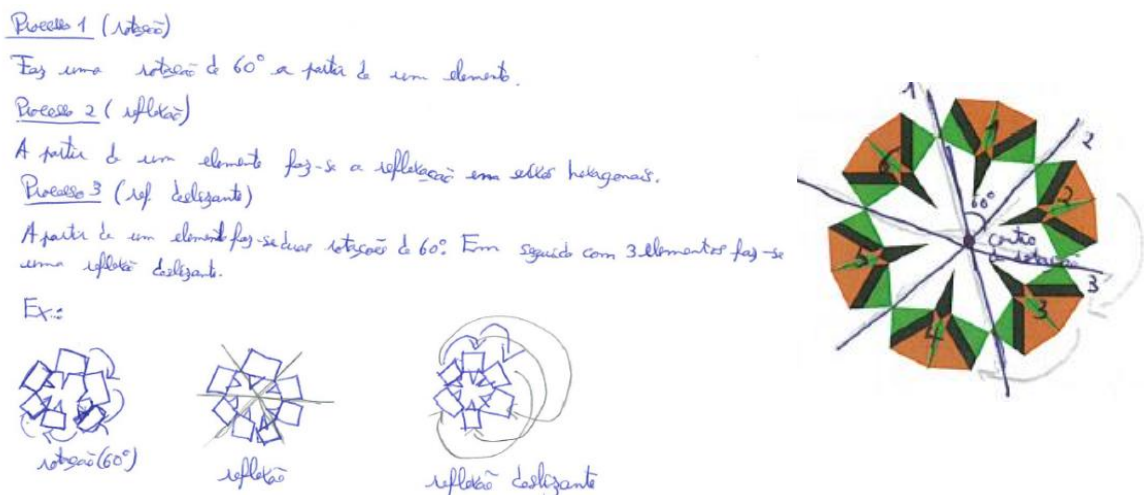 Processo 1 (rotação)
Faz uma rotação de 60° a partir de um elemento.
Processo 2 (reflexão)
A partir de um elemento faz-se a reflexão em eixos hexagonais.
Processo 3 (ref. deslizante)
A partir de um elemento faz-se duas rotações de 60°. Em seguida com 3 elementos faz-se
uma reflexão deslizante.
Ex.:
rotação (60°)
reflexão
reflexão deslizante
1
2
3
1
2
3
4
5
6
60°
centro
de rotação